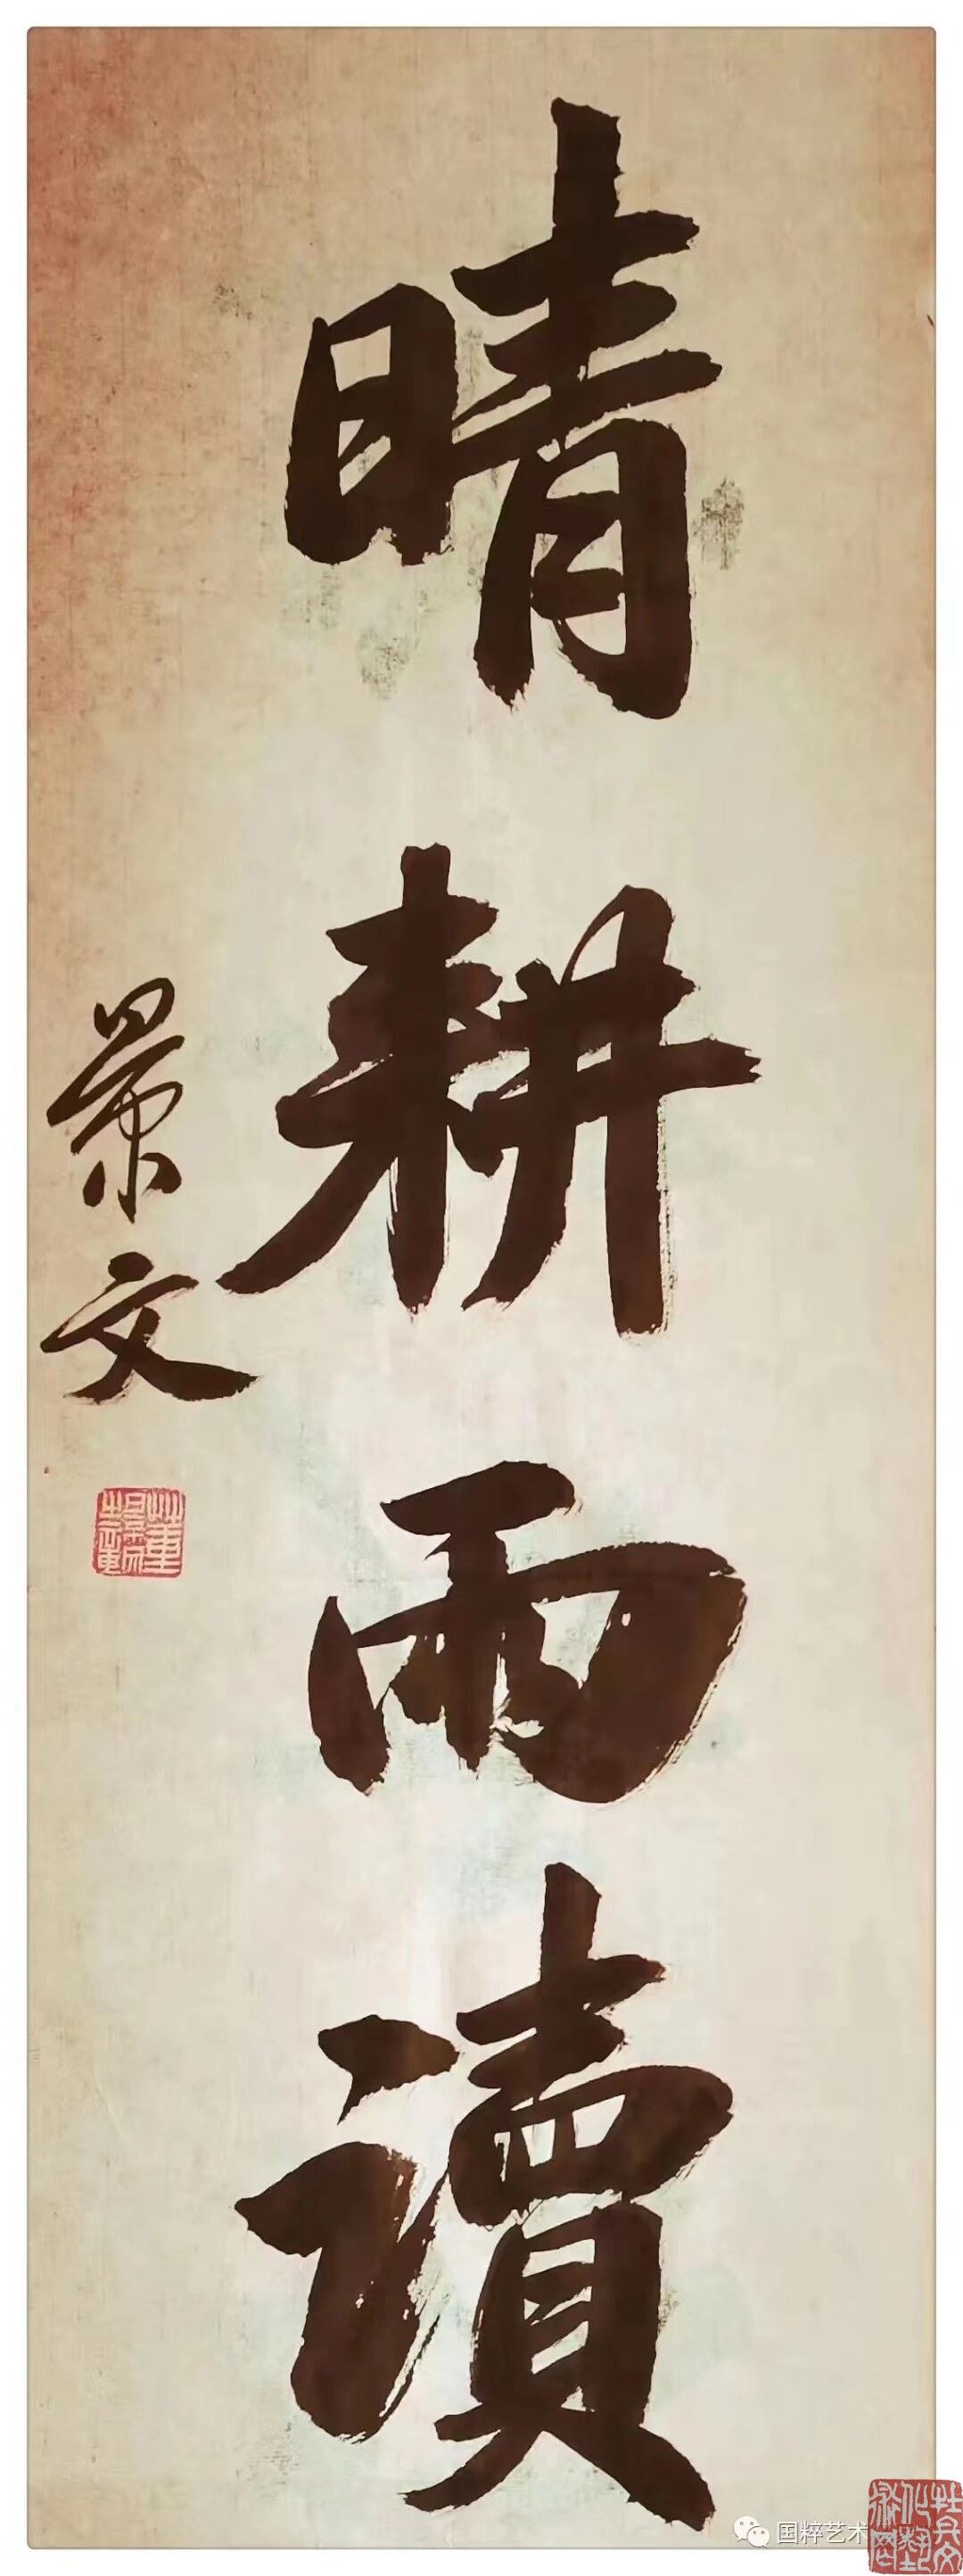 晴耕雨讀
景文
国粹艺术